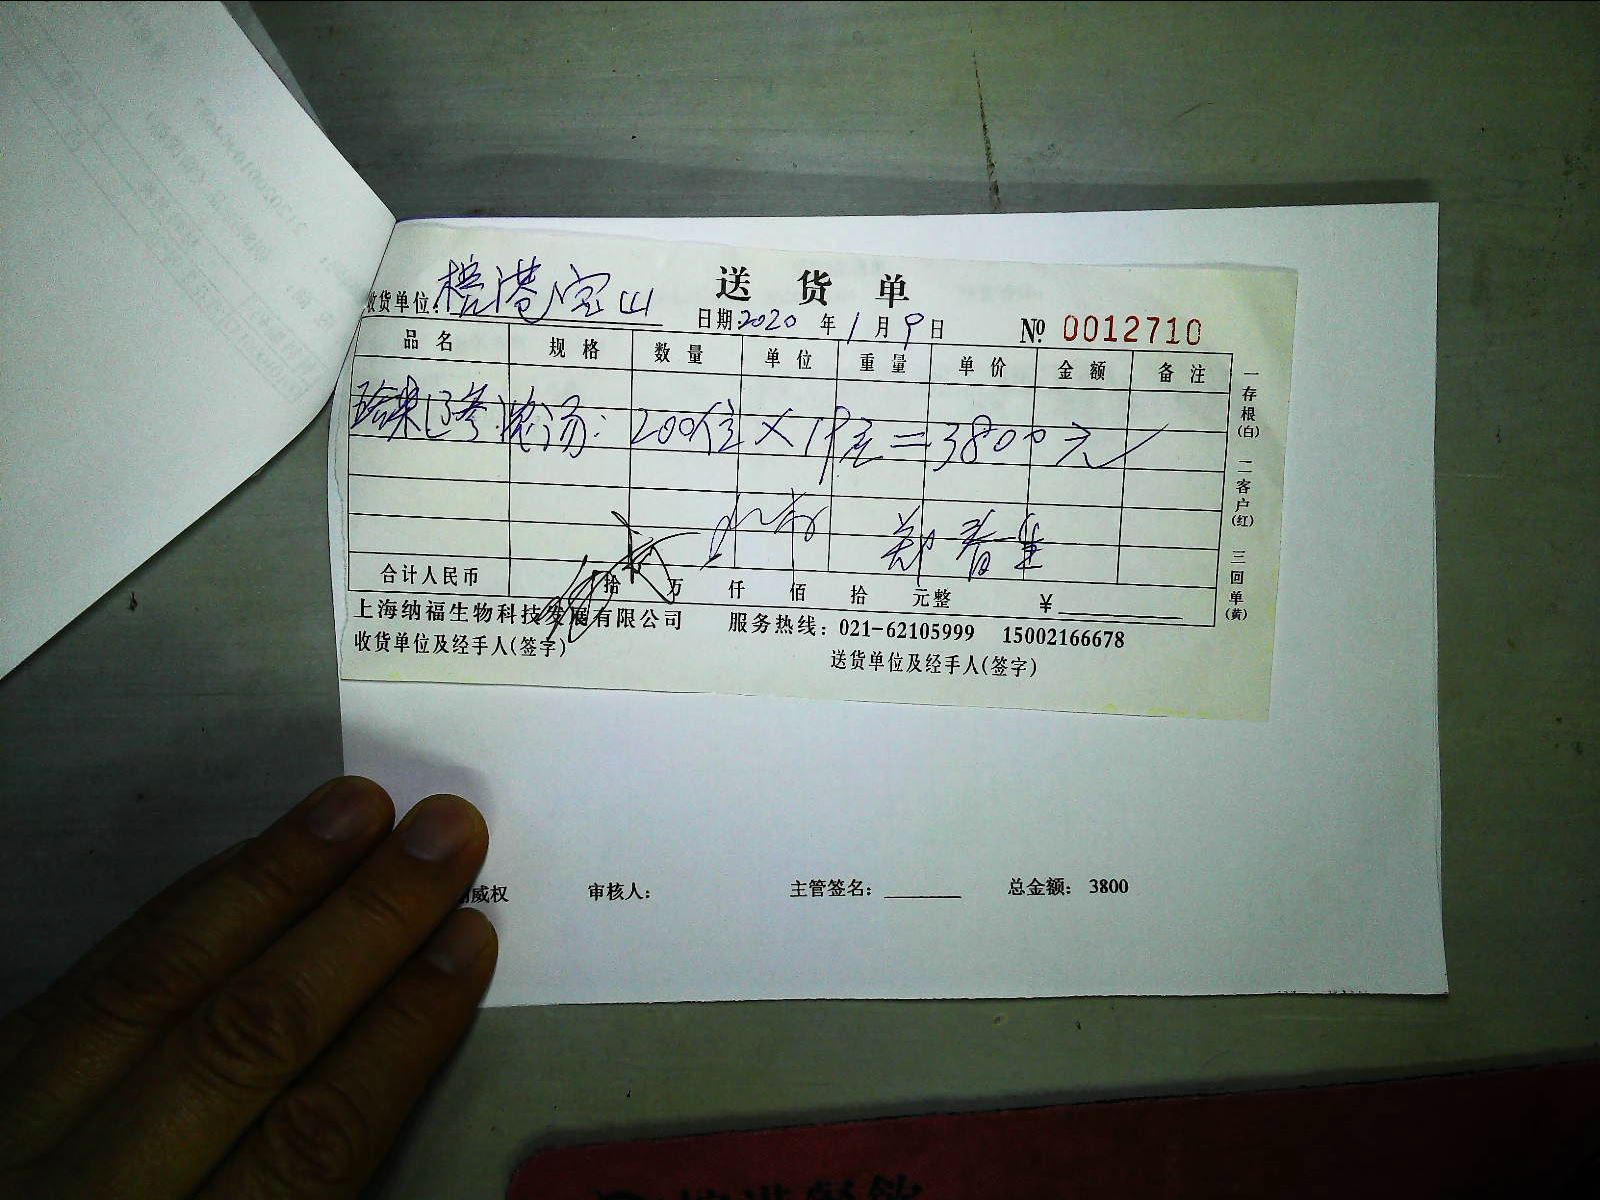 送货单
收货单位: 宝山
日期: 2020 年 1 月 9 日 № 0012710
品名 规格 数量 单位 重量 单价 金额 备注
浓汤: 200位 × 19元 = 3800元
郑春生
合计人民币 拾 万 仟 佰 拾 元整 ¥
上海纳福生物科技发展有限公司 服务热线: 021-62105999 15002166678
收货单位及经手人(签字) 送货单位及经手人(签字)
一存根(白) 二客户(红) 三回单(黄)
威权 审核人: 主管签名: 总金额: 3800